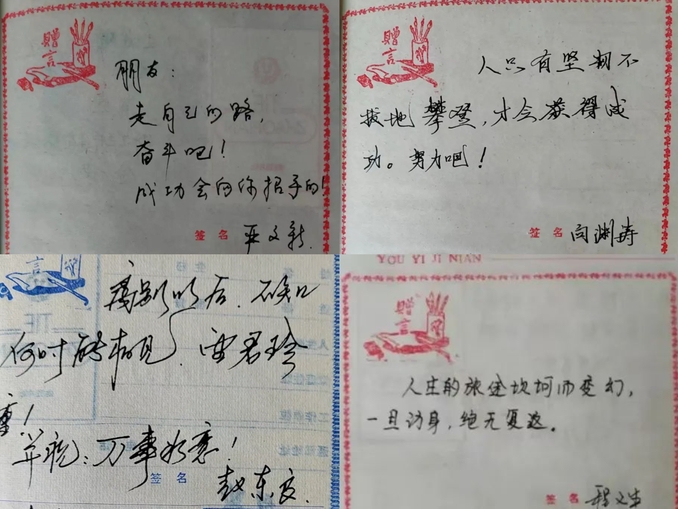 赠言
朋友：
走自己的路，
奋斗吧！
成功会向你招手的！
签名
文新
赠言
人只有坚韧不
拔地攀登，才会获得成
功。努力吧！
签名 向渊涛
言
离别以后，不知
何时能相见
雷君玲
万事如意！
签名
赵东
YOU YI JI NIAN
赠言
人生的旅途坎坷而变幻，
一旦动身，绝无复返。
签名 程文生